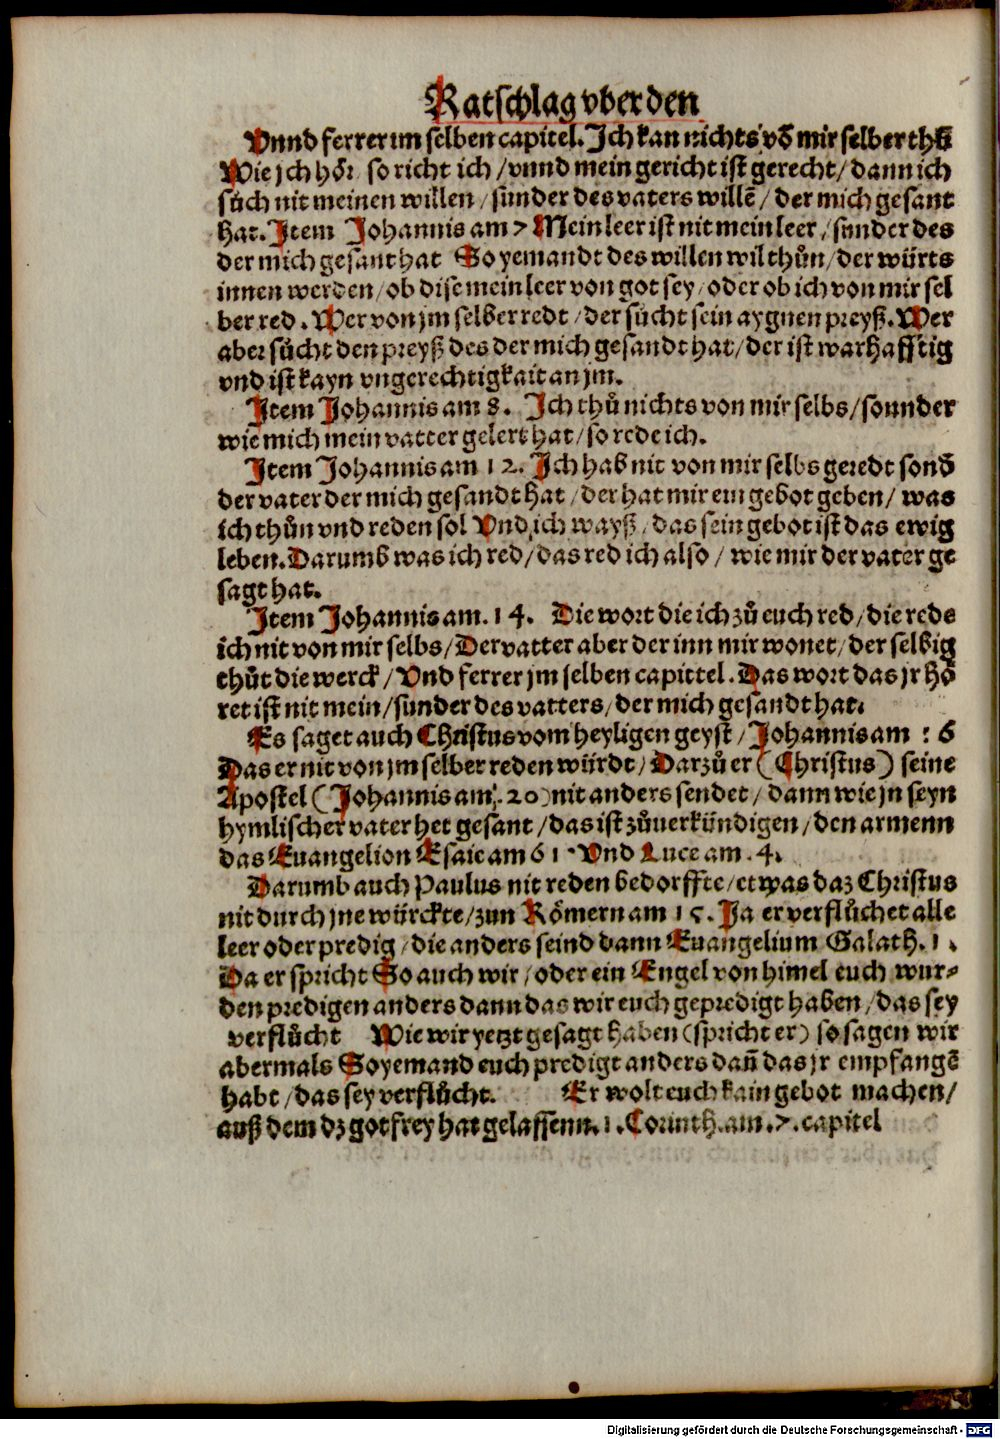 Ratschlag vber den
Vnnd ferrer im selben capitel. Ich kan nichts vō mir selber thů
Wie jch hör so richt ich / vnnd mein gericht ist gerecht / dann ich
sůch nit meinen willen / sunder des vaters willē / der mich gesant
hat. Item Johannis am 7 Mein leer ist nit mein leer / sunder des
der mich gesant hat So yemandt des willen wil thůn / der würts
innen werden / ob dise mein leer von got sey / oder ob ich von mir sel
ber red. Wer von jm selber redt / der sůcht sein aygnen preyß. Wer
aber sůcht den preyß des der mich gesandt hat / der ist warhafftig
vnd ist kayn vngerechtigkait an jm.
Item Johannis am 8. Ich thů nichts von mir selbs / sonnder
wie mich mein vatter gelert hat / so rede ich.
Item Johannis am 12. Ich hab nit von mir selbs geredt sond̄
der vater der mich gesandt hat / der hat mir ein gebot geben / was
ich thůn vnd reden sol Vnd ich wayß / das sein gebot ist das ewig
leben. Darumb was ich red / das red ich also / wie mir der vater ge
sagt hat.
Item Johannis am. 14. Die wort die ich zů euch red / die rede
ich nit von mir selbs / Der vatter aber der inn mir wonet / der selbig
thůt die werck / Vnd ferrer jm selben capittel. Das wort das jr hö
ret ist nit mein / sunder des vatters / der mich gesandt hat.
Es saget auch Christus vom heyligen geyst / Johannis am 16
Das er nit von jm selber reden würdt / Darzů er (Christus) seine
Apostel (Johannis am. 20) nit anders sendet / dann wie jn seyn
hymlischer vater het gesant / das ist zůuerkündigen / den armenn
das Euangelion Esaie am 61. Vnd Luce am. 4.
Darumb auch Paulus nit reden bedorffte / etwas daz Christus
nit durch jne würckte / zun Römern am 15. Ja er verflůchet alle
leer oder predig / die anders seind dann Euangelium Galath. 1.
Da er spricht So auch wir / oder ein Engel von himel euch wur⸗
den predigen anders dann das wir euch gepredigt haben / das sey
verflůcht Wie wir yetzt gesagt haben (spricht er) so sagen wir
abermals So yemand euch predigt anders dañ das jr empfangē
habt / das sey verflůcht. Er wolt euch kain gebot machen /
auß dem dz got frey hat gelassenn. 1. Corinth. am. 7. capitel
Digitalisierung gefördert durch die Deutsche Forschungsgemeinschaft - DFG